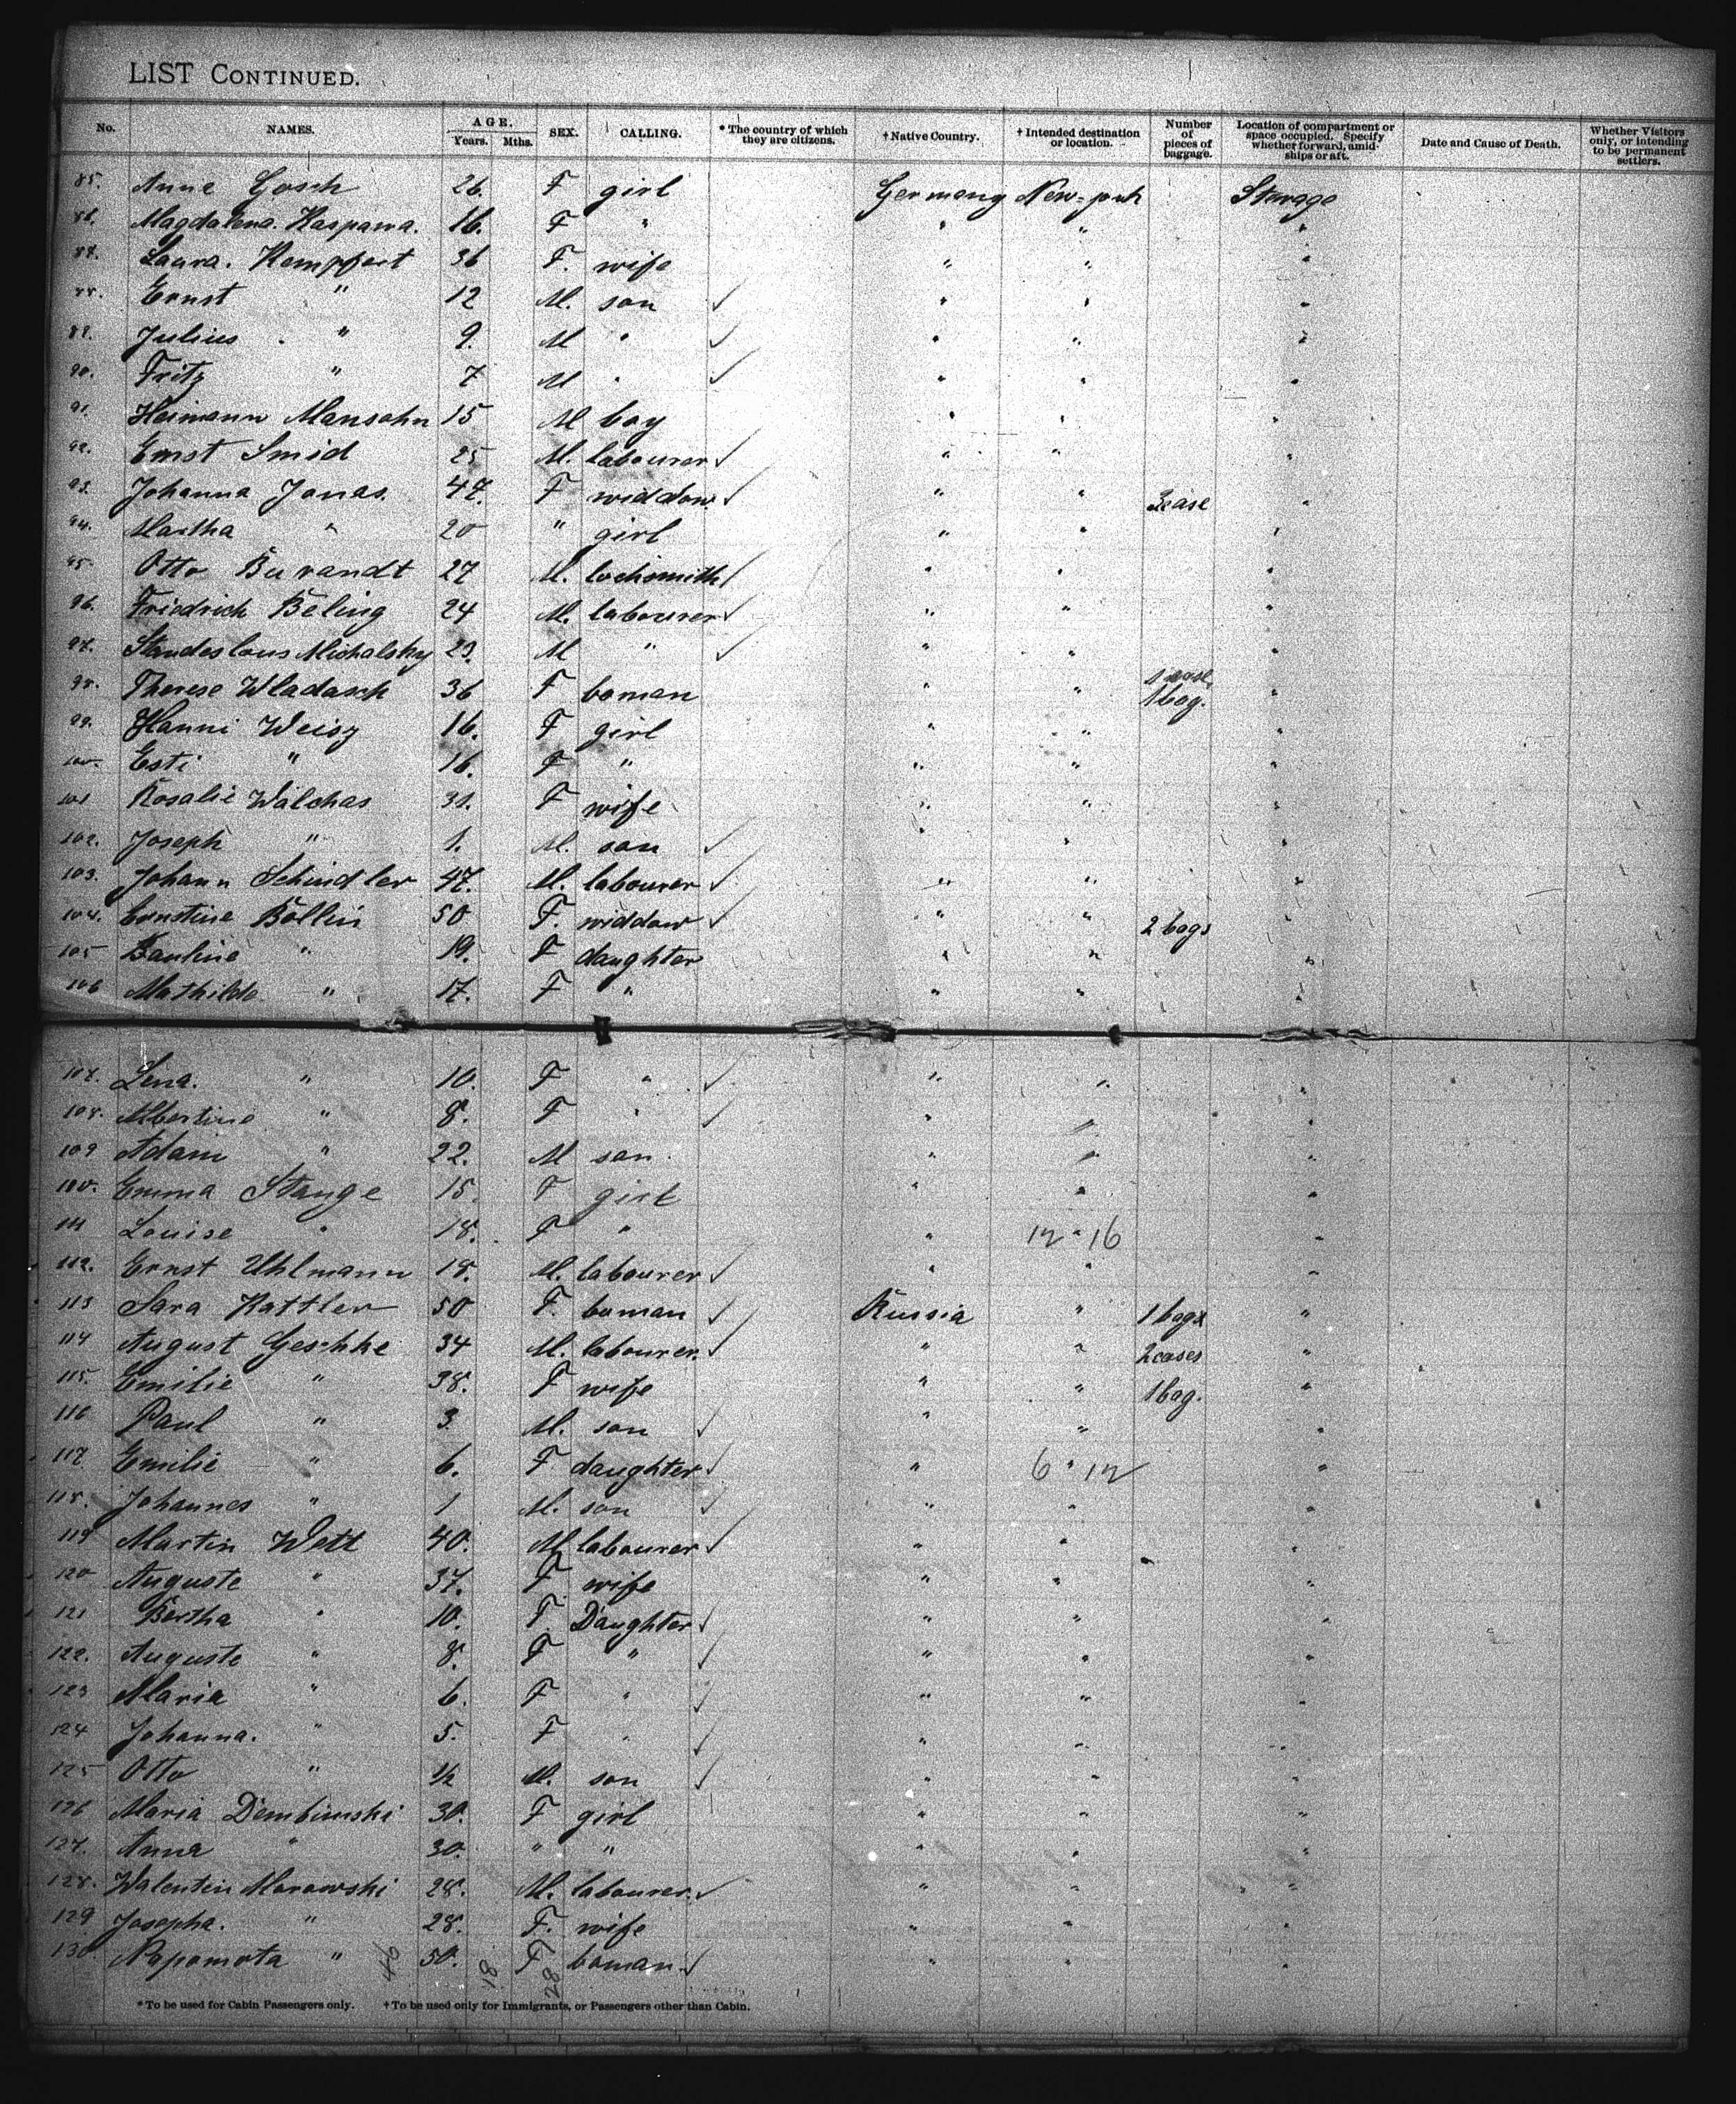 LIST CONTINUED.
No. NAMES. AGE. Years. Mths. SEX. CALLING. * The country of which they are citizens. † Native Country. † Intended destination or location. Number of pieces of baggage. Location of compartment or space occupied. Specify whether forward, amidships or aft. Date and Cause of Death. Whether Visitors only, or intending to be permanent settlers.
85. Anna Gosch 26. F girl Germany New-york
86. Magdalena. Kaspawa. 16. F " " " "
87. Laura. Kempfert 36 F. wife " " "
88. Ernst " 12 M. son ✓ " " "
89. Julius " 9. M " ✓ " " "
90. Fritz " 7 M " ✓ " " "
91. Heimann Mansohn 15 M boy " " "
92. Ernst Smid 25 M. labourer ✓ " " "
93. Johanna Jonas 47. F widdow ✓ " " "
94. Martha " 20 " girl " " "
95. Otto 27 M. locksmith ✓ " " "
96. Friedrich Beling 24 M. labourer ✓ " " "
97. Michalsky 23. M " ✓ " " "
98. Therese Wladasch 36 F boman " " 1 bag. "
99. Hanni Weisz 16. F girl " " "
100. Esti " 16. F " " " "
101 Rosalie Walchas 31. F wife " " "
102. Joseph " 1. M. son ✓ " " "
103. Johann Schindler 47. M. labourer ✓ " " "
104. Bollin 50 F. widdow ✓ " " 2 bags "
105 Pauline " 19. F daughter " " "
106 Mathilde " 17. F " " " "
107. Lena. " 10. F " ✓ " " "
108. Albertine " 8. F " ✓ " " "
109 Adam " 22. M son " " "
110. Emma Stange 15. F girl " " "
111 Louise " 18. F " " 12 " 16 "
112. Ernst Uhlmann 18. M. labourer ✓ " " "
113 Sara Kattler 50 F. boman ✓ Russia " 1 bag "
114 August Geschke 34 M. labourer. ✓ " " 2 cases "
115. Emilie " 38. F wife " " 1 bag. "
116 Paul " 3. M. son ✓ " " "
117. Emilie " 6. F daughter ✓ " 6 " 12 "
118. Johannes " 1 M. son ✓ " " "
119 Martin Wett 40. M labourer ✓ " " "
120 Auguste " 37. F wife " " "
121 Bertha " 10. F. Daughter ✓ " " "
122. Auguste " 8. F " ✓ " " "
123 Maria " 6. F " ✓ " " "
124 Johanna. " 5. F " ✓ " " "
125 Otto " ½ M. son ✓ " " "
126 Maria Dembinski 30. F girl " " "
127. Anna " 30. " " " " "
128. Walentin Morawski 28. M. labourer. ✓ " " "
129 Josepha. " 28. F. wife " " "
130 " 50. F boman. ✓ " " "
18 28
*To be used for Cabin Passengers only. †To be used only for Immigrants, or Passengers other than Cabin.